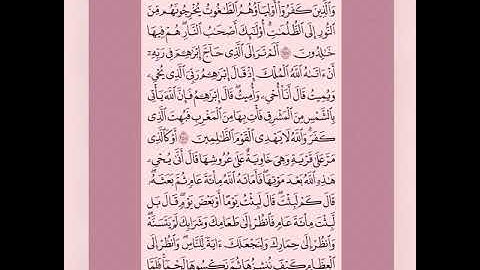 وَالَّذِينَ كَفَرُوا أَوْلِيَاؤُهُمُ الطَّاغُوتُ يُخْرِجُونَهُم مِّنَ
النُّورِ إِلَى الظُّلُمَاتِ أُولَٰئِكَ أَصْحَابُ النَّارِ هُمْ فِيهَا
خَالِدُونَ أَلَمْ تَرَ إِلَى الَّذِي حَاجَّ إِبْرَاهِيمَ فِي رَبِّهِ
أَنْ آتَاهُ اللَّهُ الْمُلْكَ إِذْ قَالَ إِبْرَاهِيمُ رَبِّيَ الَّذِي يُحْيِي
وَيُمِيتُ قَالَ أَنَا أُحْيِي وَأُمِيتُ قَالَ إِبْرَاهِيمُ فَإِنَّ اللَّهَ يَأْتِي
بِالشَّمْسِ مِنَ الْمَشْرِقِ فَأْتِ بِهَا مِنَ الْمَغْرِبِ فَبُهِتَ الَّذِي
كَفَرَ وَاللَّهُ لَا يَهْدِي الْقَوْمَ الظَّالِمِينَ أَوْ كَالَّذِي
مَرَّ عَلَىٰ قَرْيَةٍ وَهِيَ خَاوِيَةٌ عَلَىٰ عُرُوشِهَا قَالَ أَنَّىٰ يُحْيِي
هَٰذِهِ اللَّهُ بَعْدَ مَوْتِهَا فَأَمَاتَهُ اللَّهُ مِائَةَ عَامٍ ثُمَّ بَعَثَهُ
قَالَ كَمْ لَبِثْتَ قَالَ لَبِثْتُ يَوْمًا أَوْ بَعْضَ يَوْمٍ قَالَ بَل
لَّبِثْتَ مِائَةَ عَامٍ فَانظُرْ إِلَىٰ طَعَامِكَ وَشَرَابِكَ لَمْ يَتَسَنَّهْ
وَانظُرْ إِلَىٰ حِمَارِكَ وَلِنَجْعَلَكَ آيَةً لِّلنَّاسِ وَانظُرْ إِلَى
الْعِظَامِ كَيْفَ نُنشِزُهَا ثُمَّ نَكْسُوهَا لَحْمًا فَلَمَّا